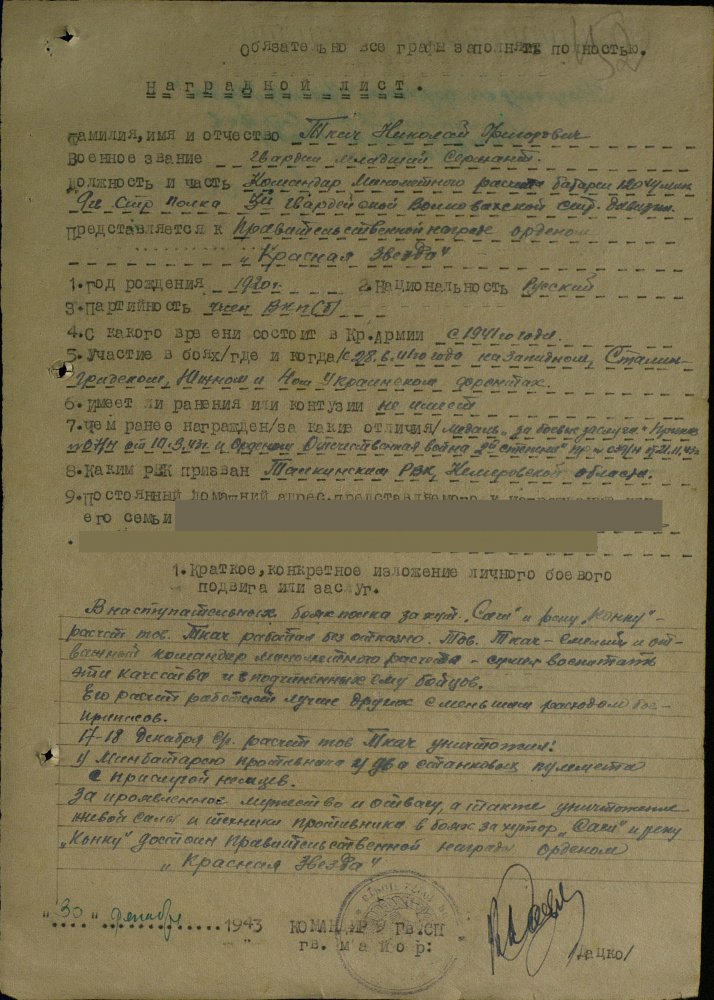 Обязательно все графы заполнять полностью.
НАГРАДНОЙ ЛИСТ.
Фамилия, имя и отчество Ткач Николай Фёдорович
Военное звание гвардии младший Сержант.
Должность и часть Командир Миномётного расчета батареи 120 м/м мин
9 гв Стр Полка гвардейской Волновахской стр. дивизии.
Представляется к Правительственной награде орденом
"Красная Звезда"
1. Год рождения 1920 г. 2. Национальность Русский
3. Партийность член ВКП(б)
4. С какого вре ени состоит в Кр. Армии с 1941го года
5. Участие в боях/где и когда/ на западном, Сталин-
градском, Южном и 4ом Украинском фронтах.
6. Имеет ли ранения или контузии не имеет
7. Чем ранее награжден/за какие отличия/ Медаль "за боевые заслуги"
от 10.3.43г. и Орденом Отечественная война 2й степени от 21.11.43г
8. Каким РВК призван РВК, Кемеровской области.
9. Постоянный домашний адрес представляемого к награждению или
его семьи
1. Краткое, конкретное изложение личного боевого
подвига или заслуг.
В наступательных боях полка за хут. "Саш" и реку "Конку" -
расчет тов. Ткач работал без отказно. Тов. Ткач - смелый и от-
важный командир миномётного расчета - сумел воспитать
эти качества и в подчиненных ему бойцов.
Его расчет работает лучше других с меньшим расходом бое-
припасов.
17-18 декабря с/г. расчет тов Ткач уничтожил:
Минбатарею противника и два станковых пулемета
с прислугой немцев.
За проявленное мужество и отвагу, а также уничтожение
живой силы и техники противника в боях за хутор "Саш" и реку
"Конку" достоин Правительственной награды орденом
"Красная Звезда"
"30" декабря 1943
КОМАНДИР 9 ГВ. СП
гв. майор:
/Дацко/